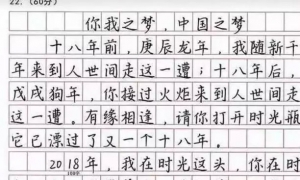 22.（60分）
你我之梦，中国之梦
十八年前，庚辰龙年，我随新千
年来到人世间走这一遭；十八年后，
戊戌狗年，你接过火炬来到人世间走
这一遭。有缘相逢，请你打开时光瓶，
它已漂过了又一个十八年。
2018年，我在时光这头，你在时